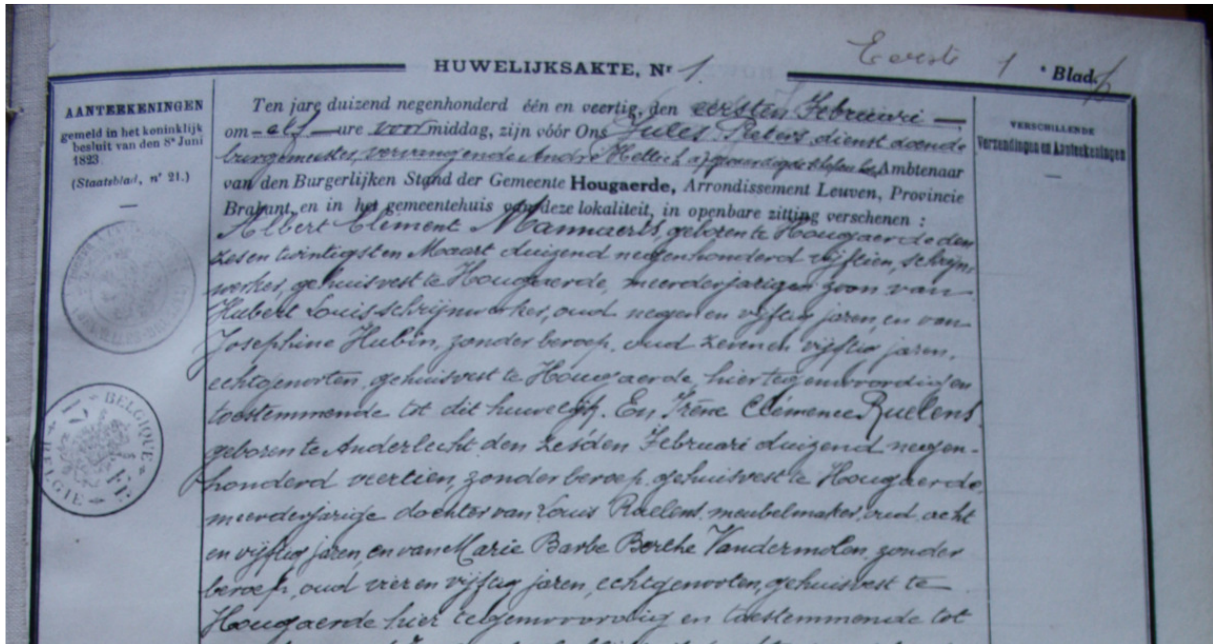 Eerste 1 Blad.
HUWELIJKSAKTE, Nr 1.
AANTEEKENINGEN
gemeld in het koninklijk
besluit van den 8n Juni
1823
(Staatsblad, n° 21.)
Ten jare duizend negenhonderd één en veertig, den eersten Februari
om elf ure voormiddag, zijn vóór Ons Jules Peters, dienst doende
burgemeester, vervangende André Ambtenaar
van den Burgerlijken Stand der Gemeente Hougaerde, Arrondissement Leuven, Provincie
Brabant, en in het gemeentehuis van deze lokaliteit, in openbare zitting verschenen :
Albert Clement Mannaerts, geboren te Hougaerde den
zes en twintigsten Maart duizend negenhonderd vijftien, schrijn
werker, gehuisvest te Hougaerde, meerderjarigen zoon van
Hubert Louis schrijnwerker, oud negen en vijftig jaren, en van
Josephine Hubin, zonder beroep, oud zeven en vijftig jaren,
echtgenooten, gehuisvest te Hougaerde, hier tegenwoordig en
toestemmende tot dit huwelijk. En Irène Clémence Ruelens
geboren te Anderlecht den zesden Februari duizend negen-
honderd veertien, zonder beroep, gehuisvest te Hougaerde,
meerderjarige dochter van Louis Ruelens meubelmaker, oud acht
en vijftig jaren, en van Marie Barbe Berthe Vandermolen, zonder
beroep, oud vier en vijftig jaren, echtgenooten, gehuisvest te
Hougaerde hier tegenwoordig en toestemmende tot
VERSCHILLENDE
Verzendingen en Aanteekeningen
BELGIQUE
BELGIE